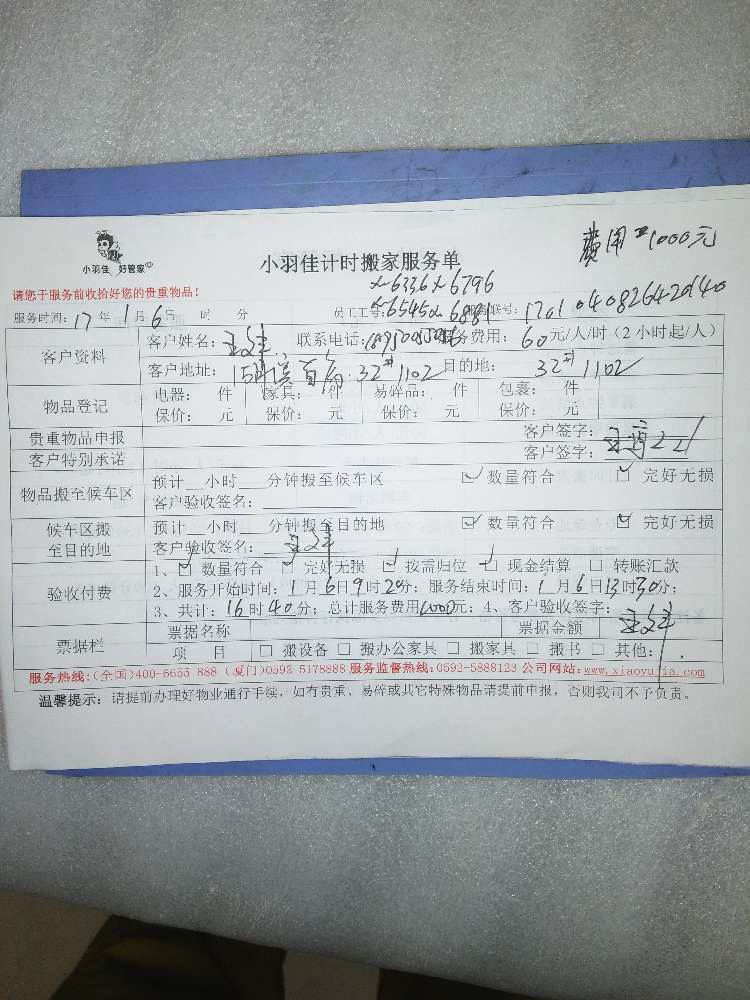 费用=1000元
小羽佳 好管家
小羽佳计时搬家服务单
x-6336 x-6796
请您于服务前收拾好您的贵重物品!
x-6545 x-6881
服务时间:17年1月6日 时 分 员工工号: 服务联号:1701040826420140
客户资料 客户姓名: 联系电话: 服务费用:60元/人/时(2小时起/人)
客户地址: 32# 1102 目的地: 32# 1102
物品登记 电器: 件 家具: 件 易碎品: 件 包裹: 件
保价: 元 保价: 元 保价: 元 保价: 元
贵重物品申报 客户签字:
客户特别承诺 客户签字:
物品搬至候车区 预计__小时__分钟搬至候车区 ☑ 数量符合 ☐ 完好无损
客户验收签名:
候车区搬至目的地 预计__小时__分钟搬至目的地 ☑ 数量符合 ☑ 完好无损
客户验收签名:
验收付费 1、☑ 数量符合 ☑ 完好无损 ☑ 按需归位 ☑ 现金结算 ☐ 转账汇款
2、服务开始时间:1月6日9时20分;服务结束时间:1月6日13时30分;
3、共计:16时40分;总计服务费用1000元;4、客户验收签字:
票据栏 票据名称 票据金额
项 目 ☐ 搬设备 ☐ 搬办公家具 ☐ 搬家具 ☐ 搬书 ☐ 其他:
服务热线:(全国)400-6655 888 (厦门)0592 5178888 服务监督热线:0592-5888123 公司网站:www.xiaoyujia.com
温馨提示:请提前办理好物业通行手续,如有贵重、易碎或其它特殊物品请提前申报,否则我司不予负责。